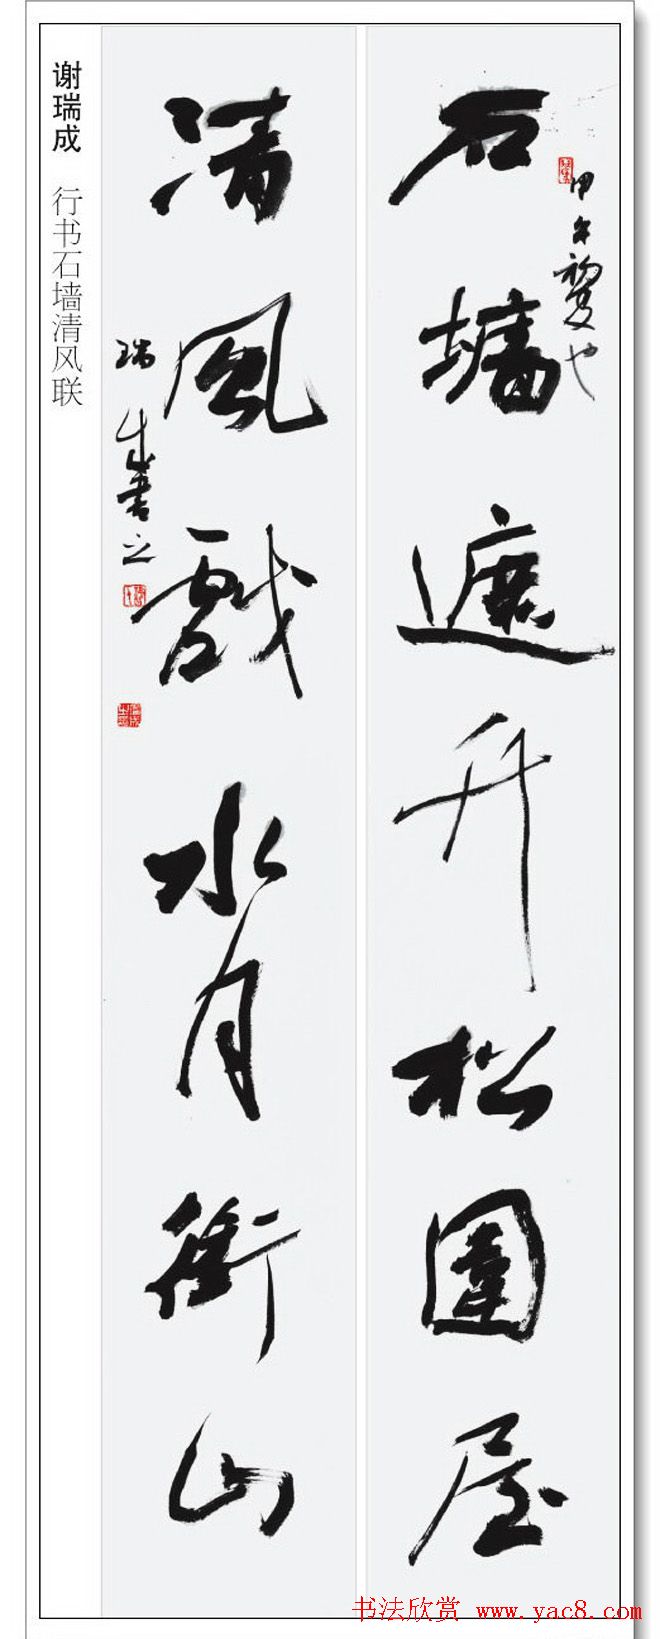 谢瑞成 行书石墙清风联
石墙遮松圍屋
甲午初夏也
清風戲水月銜山
瑞成書之
书法欣赏 www.yac8.com